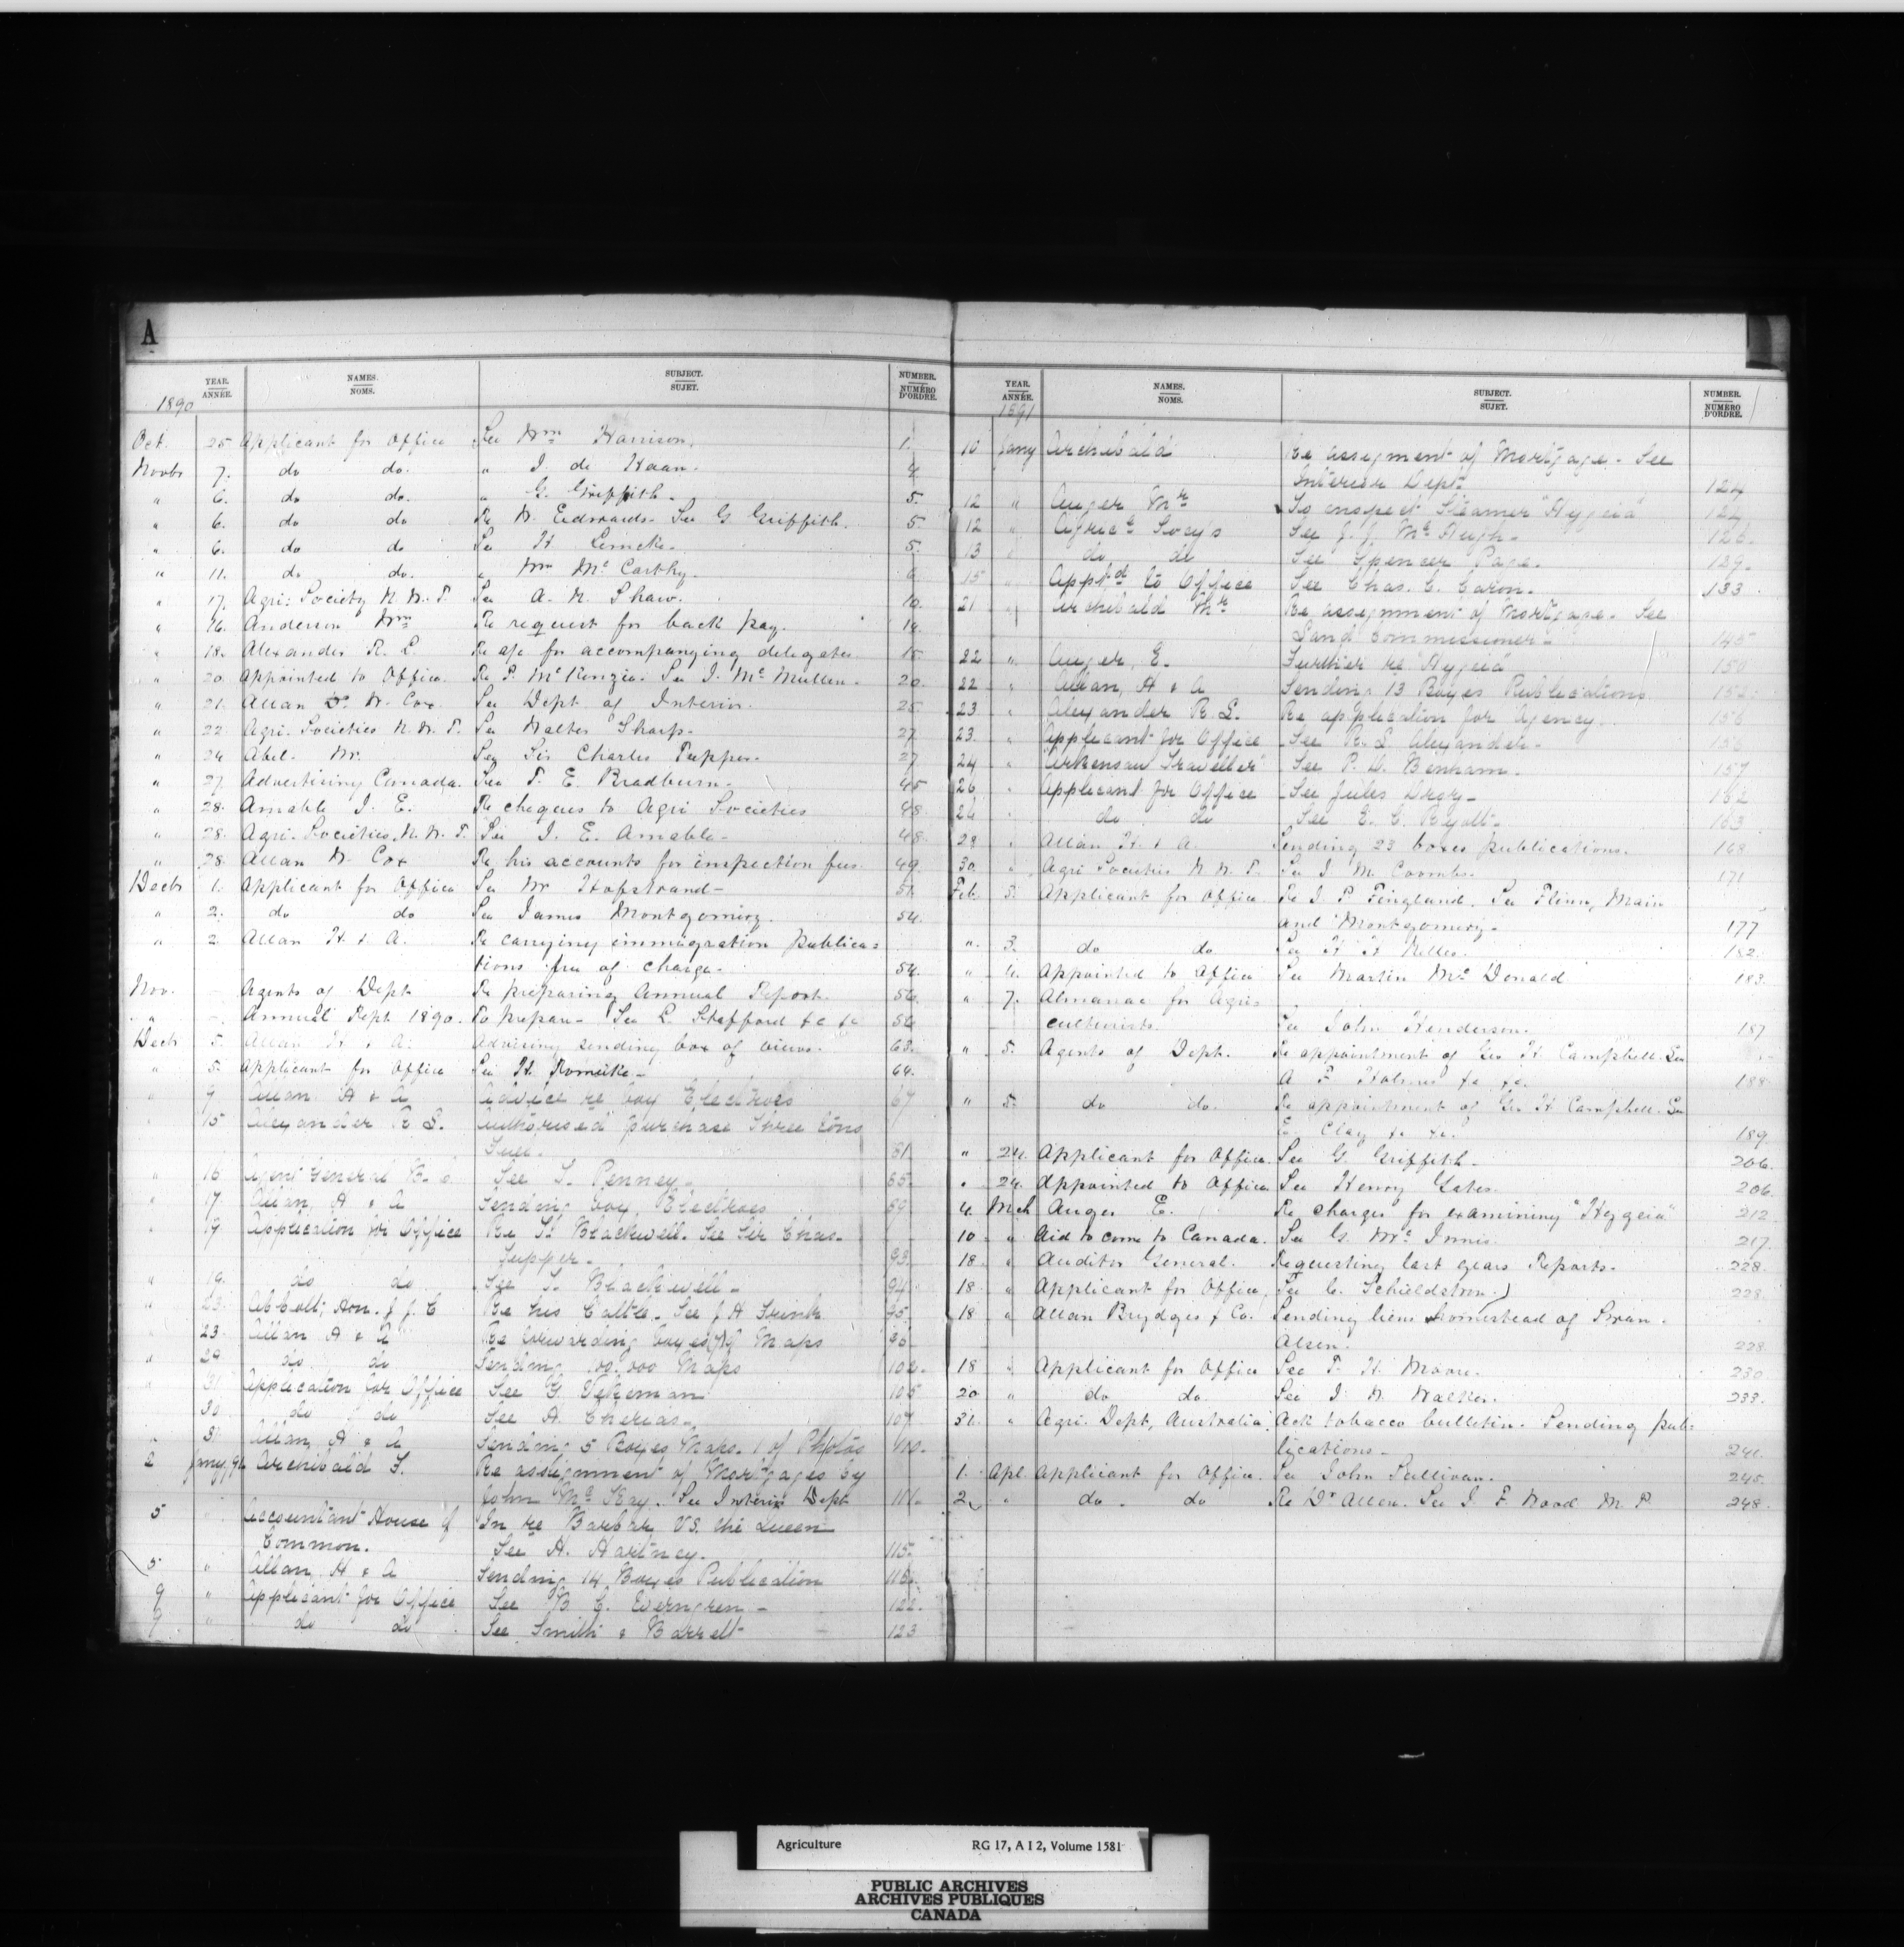 A
YEAR. ANNÉE. NAMES. NOMS. SUBJECT. SUJET. NUMBER. NUMÉRO D'ORDRE.
1890
Oct. 25 Applicant for Office See Wm Harrison. 1.
Novbr 7. do do. " J. de Haan. 4
" 6. do do. " G. Griffith. 5.
" 6. do do Re W. Edwards. See G Griffith. 5
" 6. do do See H Limcke. 5.
" 11. do do. " Wm Mc Carthy. 6
" 17. Agri: Society N. W. T. See A. N. Shaw. 10.
" 16. Anderson Wm Re request for back pay. 14.
" 18. Alexander R. L. Re a/c for accompanying delegates 15.
" 20. Appointed to Office. Re P. McKenzie. See J. Mc Mullen. 20.
" 21. Allan W. Cox. See Dept of Interior. 25
" 22. Agri. Societies N. W. T. See Walter Sharp. 27.
" 24 Abel. Mr. See Sir Charles Tupper. 27
" 27. Advertising Canada. See T. E. Bradburn. 45
" 28. Amable J. E. Re cheques to Agri Societies 48
" 28. Agri. Societies. N. W. T. See J. E. Amable. 48.
" 28. Allan W. Cox Re his accounts for inspection fees. 49.
Decbr 1. Applicant for Office See Mr Hofstrand- 51.
" 2. do do See James Montgomery. 54.
" 2. Allan H. & A. Re carrying immigration publica=
tions free of charge. 54.
Nov. Agents of Dept Re preparing Annual Report. 56.
" Annual Rept 1890. To prepare- See L. Stafford &c &c 56
Decbr 5. Allan H. & A. Advising sending box of views. 63.
" 5. Applicant for Office See H. Romeike- 64.
" 9 Allan H & A Advice re box Electros 67
" 15 Alexander R L. Authorised purchase three tons
Fuel. 81
" 16 Agent General See S. Penney. 85.
" 17. Allan, H & A Sending box, Electros 89
" 17 Application for Office Re H. Blackwell. See Sir Chas.
Tupper. 93.
" 19. do do See S. Blackwell- 94.
" 23. Abbott, Hon. J. J. C Re his Cattle. See J H Frink 95.
" 23. Allan H & A Re forwarding boxes of Maps 96
" 29 do do Sending 100.000 Maps 102.
" 31 Application for Office See G. Tykeman 105
" 30 do do See A. Cherias. 107
" 31 Allan, H & A Sending 5 Boxes Maps. 1 of Photos 110.
2 Jany, 91 Archibald F. Re assignment of Mortgages by
John Mc Kay. See Interior Dept 111.
5 " Accountant House of In re Barbar VS. the Queen
Common. See H. Hartney. 115.
5 " Allan, H & A Sending 14 Boxes Publication 116.
9 " Applicant for Office See B. C. Everngren - 122.
9 " do do See Smith & Barrett 123
YEAR. ANNÉE. NAMES. NOMS. SUBJECT. SUJET. NUMBER. NUMÉRO D'ORDRE.
1891
10 Jany Archibald Re assignment of Mortgage. See
Interior Dept 124
12 " Auger Mr To inspect Steamer "Hygeia" 124
12 " Agricl Socy's See J. J. Mc Hugh- 126.
13 " do do See Spencer Page. 129.
15 " Apptd to Office See Chas. C. Caron. 133
21 " Archibald Mr Re assignment of Mortgage. See
Land Commissioner 145
22 " Auger, E. Further re "Hygeia" 150
22 " Allan, H & A Sending 13 Boxes Publications 152.
23 " Alexander R. L. Re application for Agency. 156
23. " Applicant for Office See R. L Alexander. 156
24 " "Arkensaw Traveller" See P. D. Benham. 157
26 " Applicant for Office See Jules Drory- 162
26 " do do See E. C. Ryott. 163
29 " Allan H. & A. Sending 23 boxes publications. 168
30. " Agri Societies N. W. T. See J. M. Coombs. 171
Feb. 3. Applicant for Office Re J P Fingland. See Flinn, Main
and Montgomery. 177
" 3. do do See H H Nelles. 182.
" 4. Appointed to Office See Martin Mc Donald 183.
" 7. Almanac for Agri=
culturists. See John Henderson. 187
" 5. Agents of Dept. Re appointment of Geo H Campbell. See
A F Holmes &c &c. 188
" 5. do do. Re appointment of Geo H Campbell. See
E. Clay &c &c. 189.
" 24. Applicant for Office. See G. Griffith. 206.
" 24. Appointed to Office See Henry Gates. 206.
4. Mch Auger E. Re charges for examining "Hygeia" 212
10 " Aid to come to Canada. See G. Mc Innis 217.
18 " Auditor General. Requesting last years Reports. 228.
18 " Applicant for Office. See C. Schieldstrom. 228.
18 " Allan Brydges & Co. Sending liens homestead of Swan.
Alsen. 228
18 " Applicant for Office See T. H. Moore. 230
20 " do do See J. W. Walker. 233.
31. " Agri. Dept, Australia. Ack tobacco bulletin. Sending pub=
lications- 241.
1. Apl Applicant for Office. See John Sullivan. 245.
2 " do do Re Dr Allen. See J F Wood M. P. 248.
Agriculture RG 17, A I 2, Volume 1581
PUBLIC ARCHIVES
ARCHIVES PUBLIQUES
CANADA